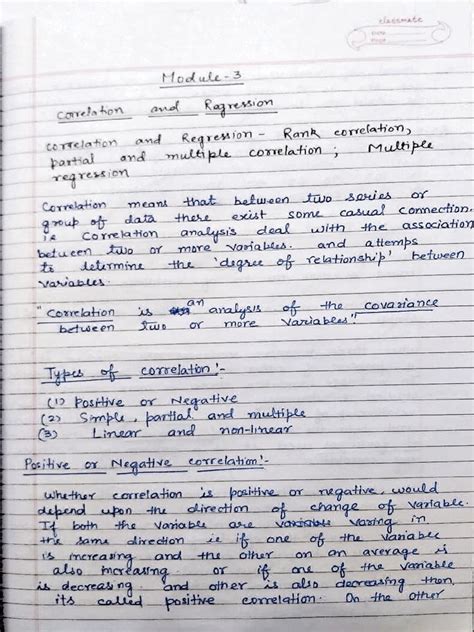 classmate
Date
Page
Module-3
Correlation and Regression
Correlation and Regression - Rank correlation,
partial and multiple correlation ; Multiple
regression
Correlation means that between two series or
group of data there exist some casual connection.
ie Correlation analysis deal with the association
between two or more variables. and attemps
to determine the 'degree of relationship' between
variables.
"Correlation is an analysis of the covariance
between two or more variables."
Types of correlation :-
(1) Positive or Negative
(2) Simple, partial and multiple
(3) Linear and non-linear
Positive or Negative correlation :-
Whether correlation is positive or negative, would
depend upon the direction of change of variable.
If both the variable are varing in
the same direction ie if one of the variable
is increasing and the other on an average is
also increasing or if one of the variable
is decreasing. and other is also decreasing then,
its called positive correlation. On the other